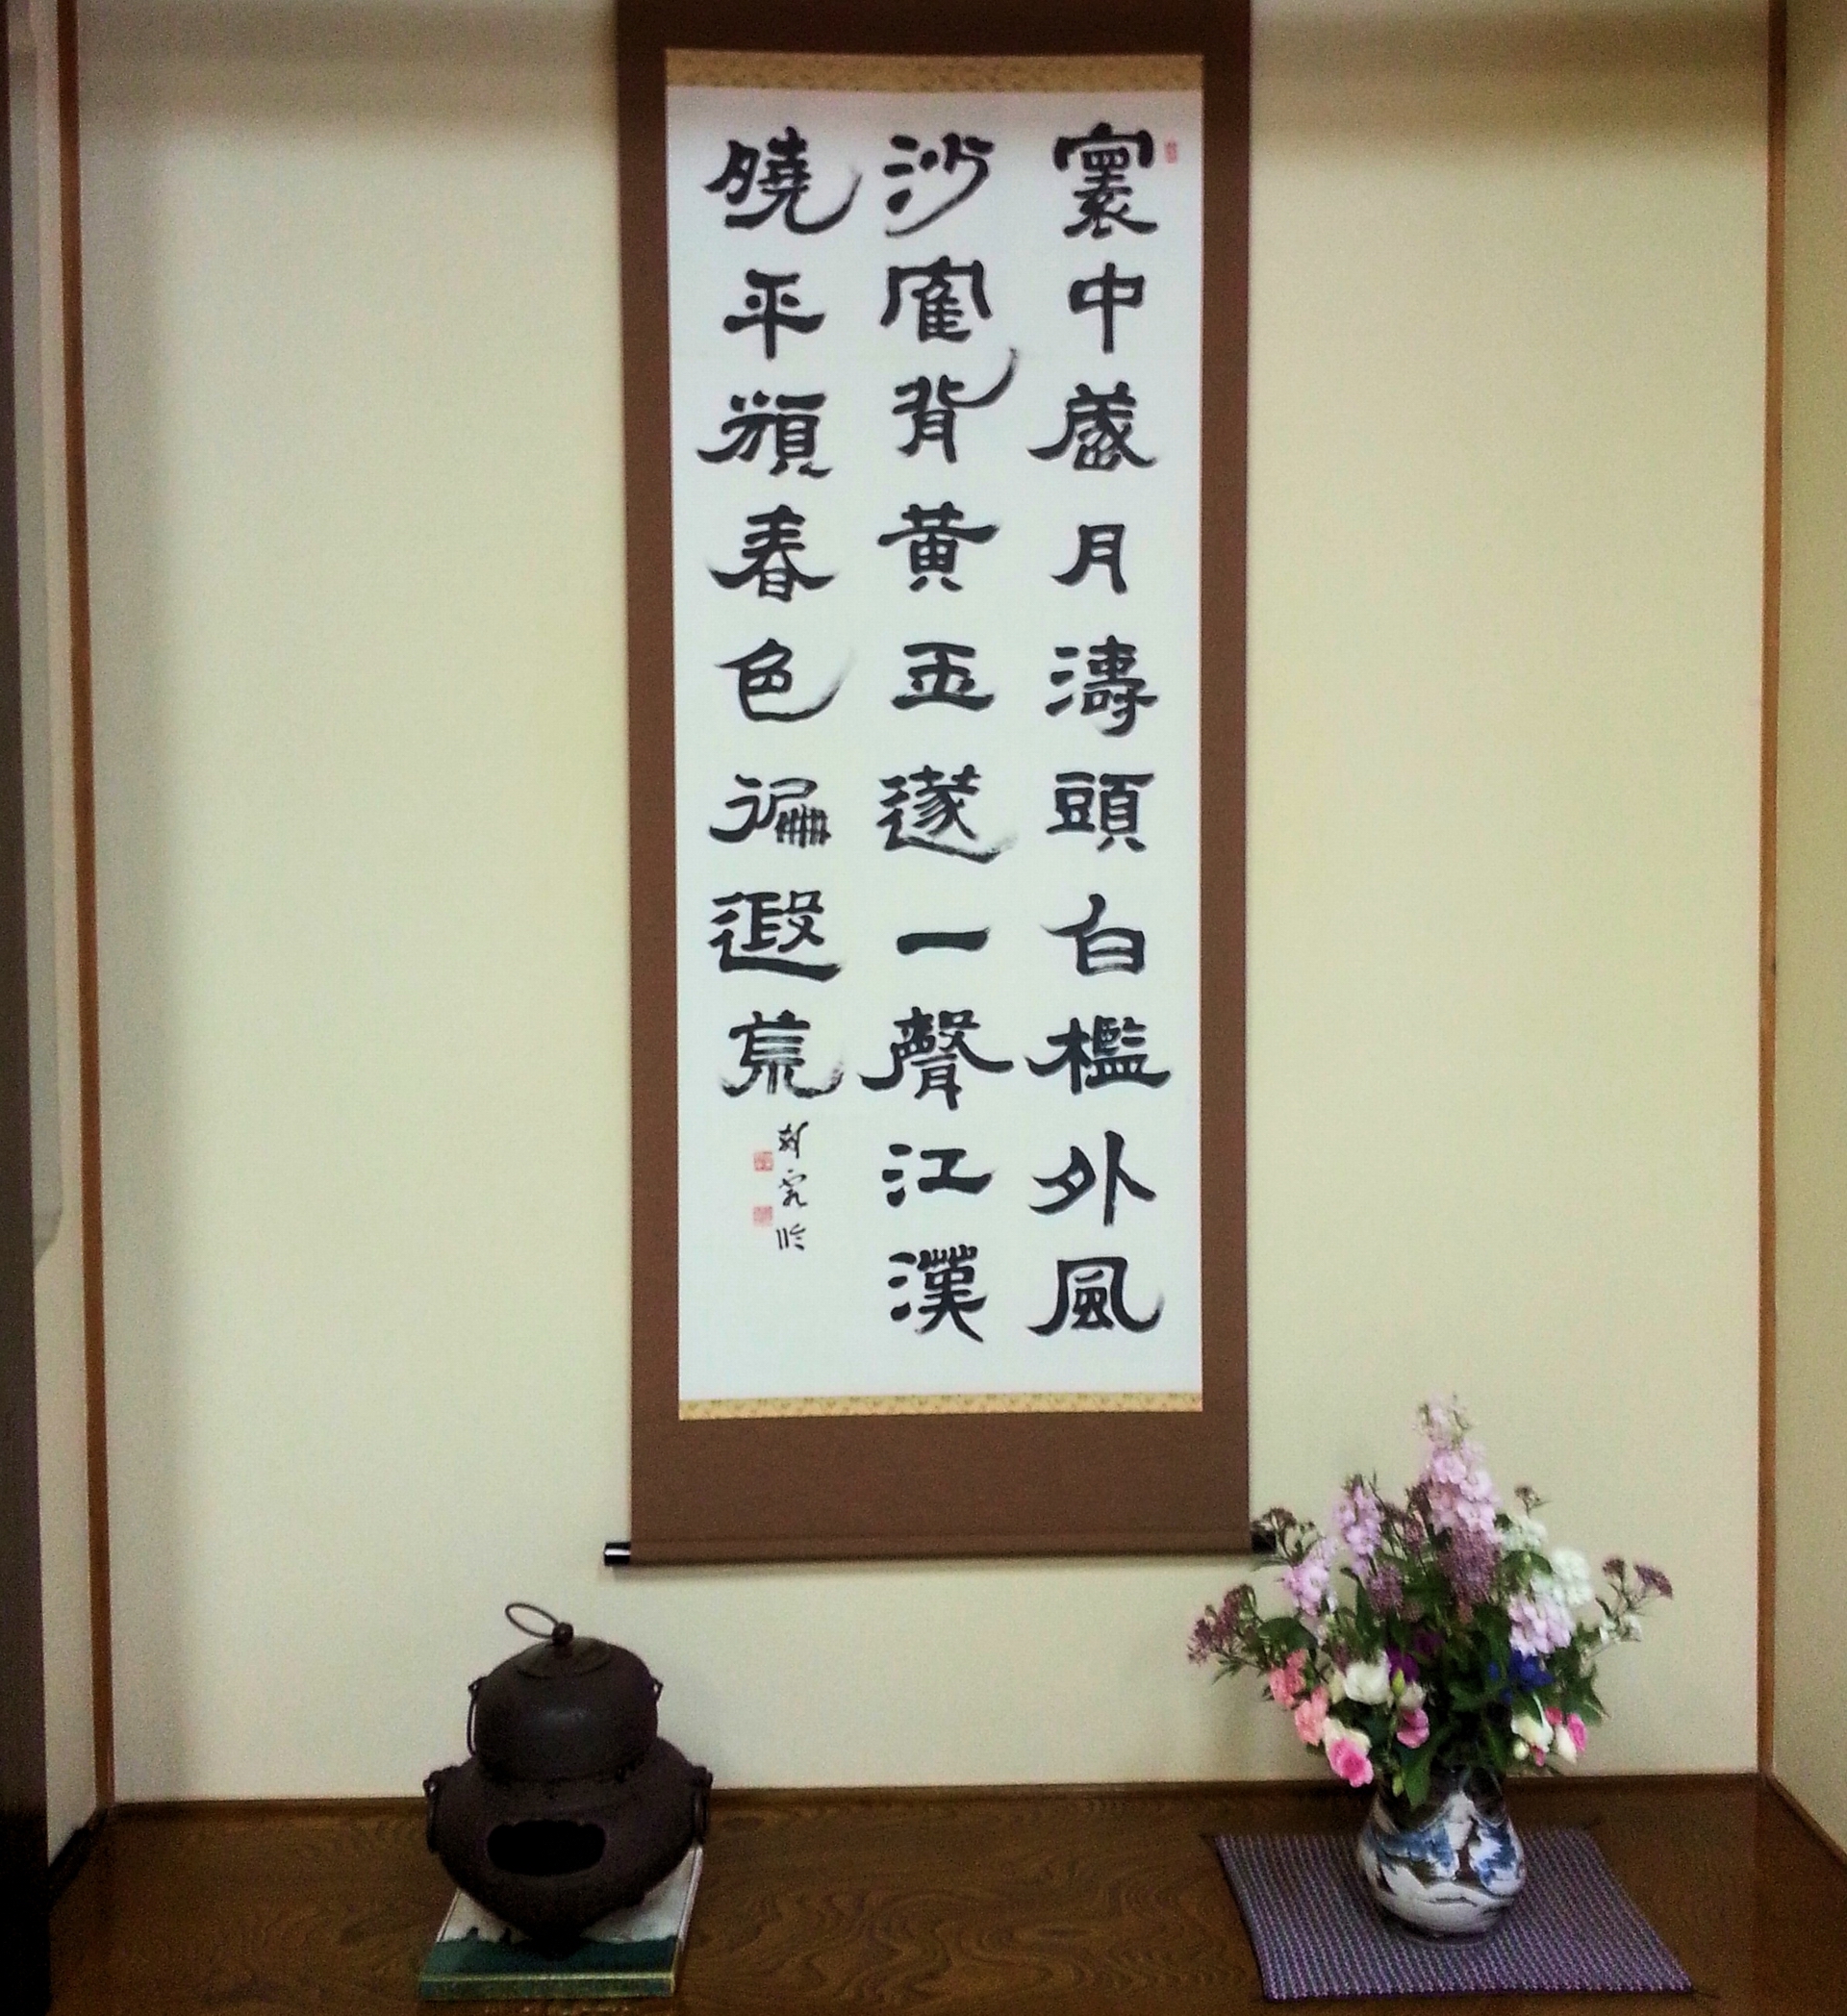 寰中歳月濤頭白檻外風
沙窗背黄玉遂一聲江漢
曉平蘋春色遍遐荒
臨